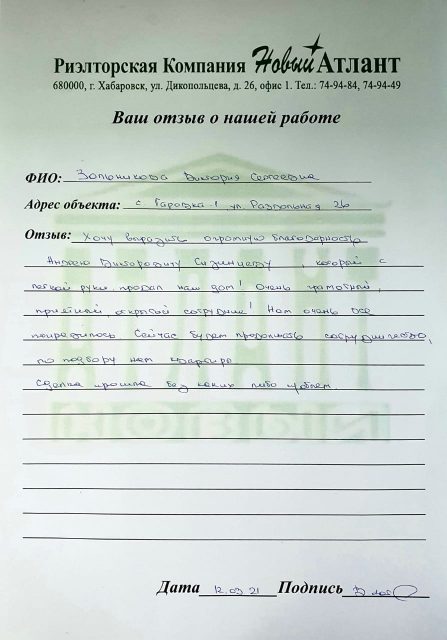 Риэлторская Компания Новый Атлант
680000, г. Хабаровск, ул. Дикопольцева, д. 26, офис 1. Тел.: 74-94-84, 74-94-49
Ваш отзыв о нашей работе
ФИО: Зольникова Виктория Сергеевна
Адрес объекта: с. Гаровка-1 ул. Раздольная 26
Отзыв: Хочу выразить огромную благодарность
Андрею Викторовичу , который с
легкой руки продал наш дом! Очень грамотный,
приятный открытый сотрудник! Нам очень все
понравилось Сейчас будем продолжать сотрудничество,
по подбору нам квартиры
сделка прошла без каких либо проблем.
Дата 12.03.21 Подпись